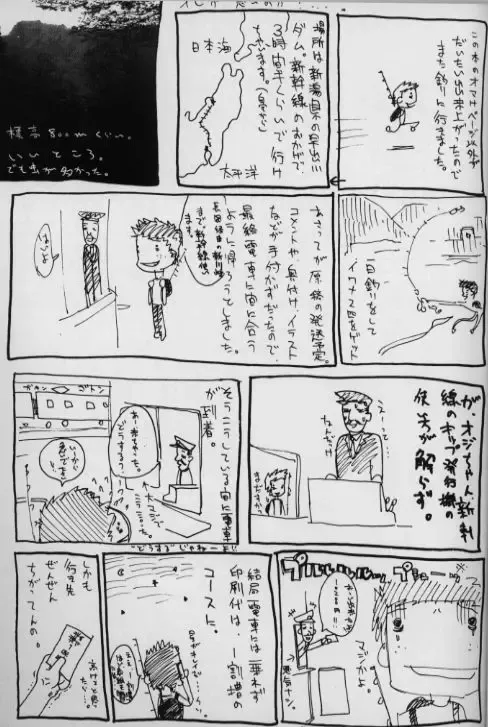 この本のオマケページ以外が
だいたい出来上がったので
また釣りに行きました。
場所は新潟県の早出川
ダム。新幹線のおかげで、
3時間半くらいで行け
ちゃいます。
日本海
太平洋
標高800mくらい。
いいところ。
でも虫が多かった。
一日釣りをして
イワナ2匹をゲット
あさってが原稿の発送予定。
コメントや奥付け、イラスト
などが手付かずだったので、
最終電車に間に合う
ように帰ろうとしました。
まで、新幹線も
ます。
はいよ
が、オジちゃん、新幹
線のキップ発行機の
使い方が解らず。
えーって…
なんだっけ
まだすか
そうこうしている間に電車
が到着。
ガタン
ゴトン
あー来ちゃった。
どうするっ
いいから
急いで
"どうする"じゃねーよ!!
プルルルルルー
プシューッ
マジかよ。
結局電車には乗れず
印刷代は、1割増の
コースに。
星がキレイで…
しかも
行き先
ぜんぜん
ちがってんの。